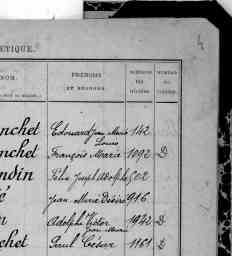 ÉTIQUE.
NOM. PRÉNOMS ET SURNOMS. NUMÉROS DES NUMÉRO
nchet Edouard Jean Marie 142
Louis
nchet François Marie 1092 D
ndin Félix Joseph Adolphe 502
é Jean Marie Désiré 916
n Adolphe Victor 1942 D
Jean Marie
chet Paul César 1161 D
4